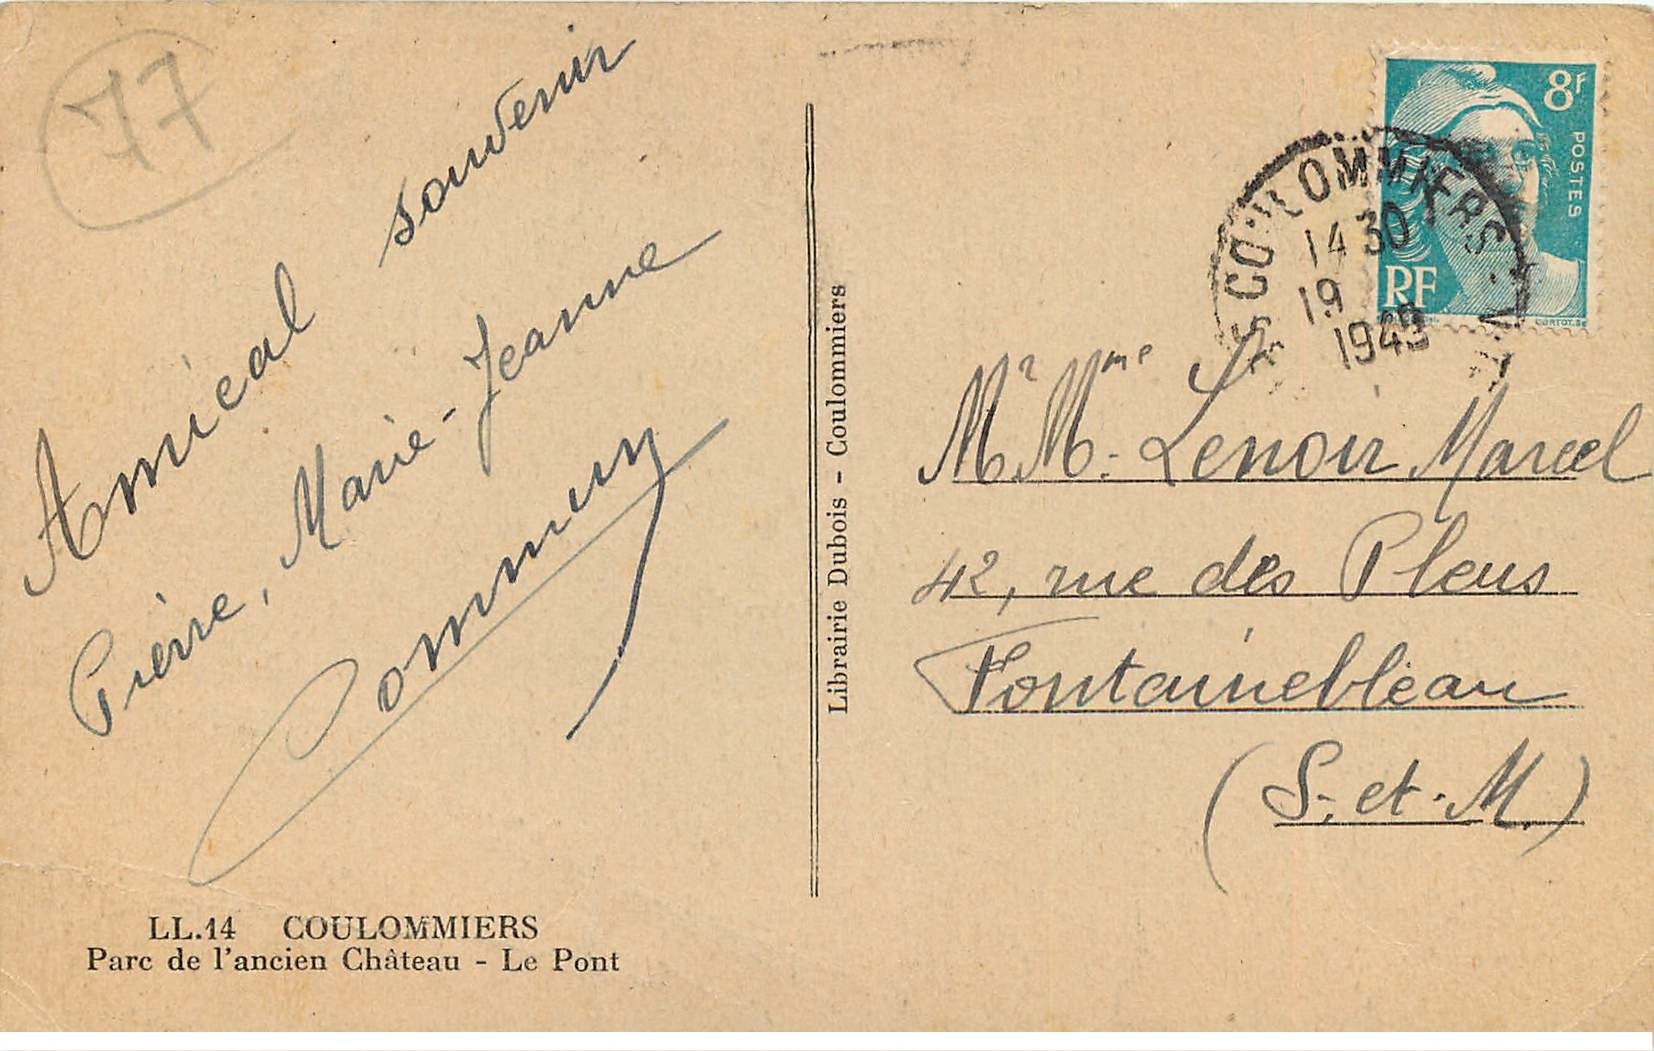 77
Amical souvenir
Pierre, Marie-Jeanne
Commun
LL.14 COULOMMIERS
Parc de l'ancien Château - Le Pont
Librairie Dubois - Coulommiers
8F
POSTES
RF
CORTOT.SC
COULOMMIERS
14 30
19
1949
Mr Mme. Lenoir Marcel
42, rue des Pleus
Fontainebleau
(S.-et-M.)